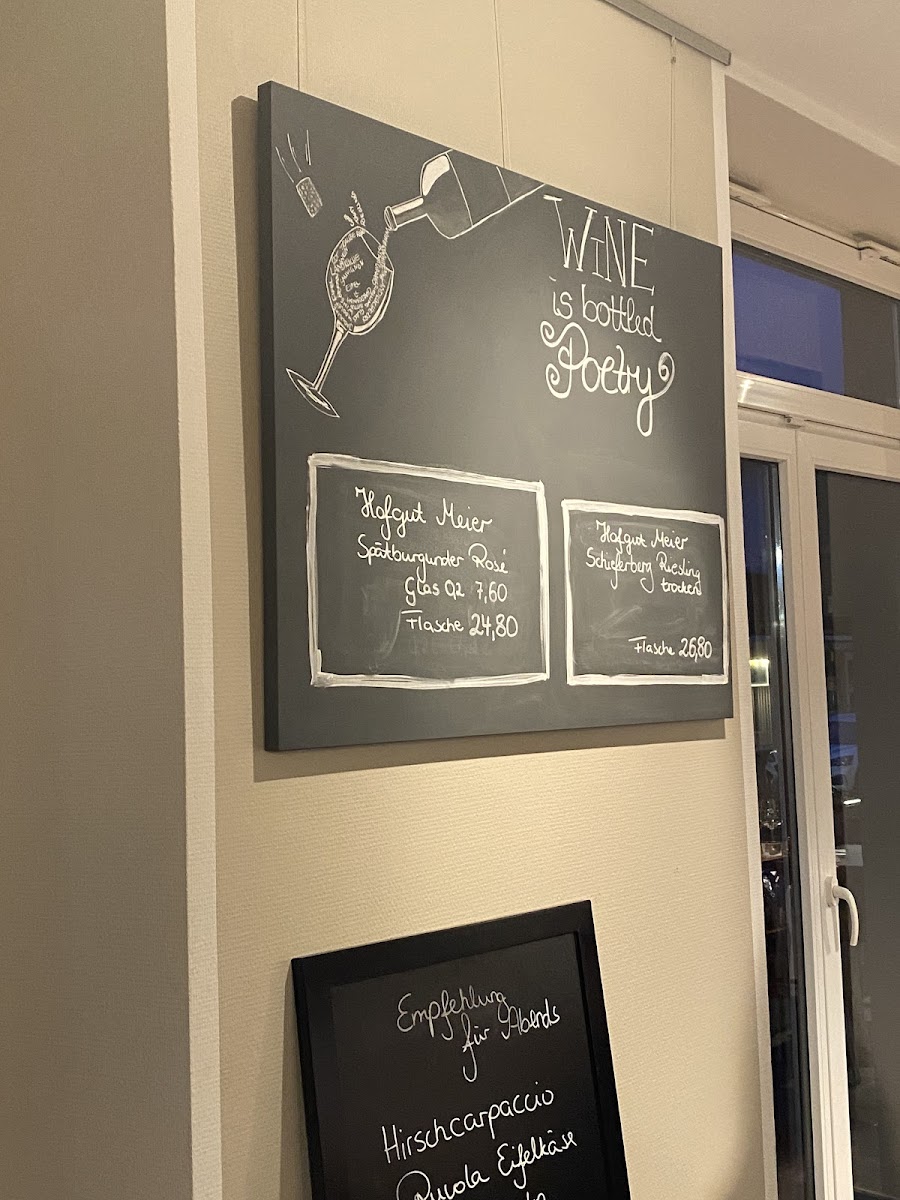 WINE
is bottled
Poetry
Hofgut Meier
Spätburgunder Rosé
Glas 0,2 7,60
Flasche 24,80
Hofgut Meier
Schieferberg Riesling
trocken
Flasche 26,80
Empfehlung
für Abends
Hirschcarpaccio
Rucola Eifelkäse